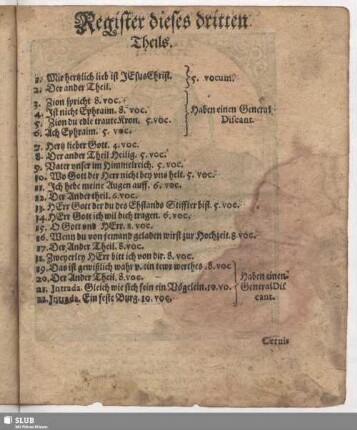 Register dieses dritten
Theils.
1. Wie hertzlich lieb ist JEsus Christ.
2. Der ander Theil.
5. vocum.
3. Zion spricht 8. voc.
4. Ist nicht Ephraim. 8. voc.
5. Zion du edle traute Kron. 5. voc.
6. Ach Ephraim. 5. voc.
Haben einen General
Discant.
7. Hertz lieber Gott. 4. voc.
8. Der ander Theil Heilig. 5. voc.
9. Vater unser im Himmelreich. 5. voc.
10. Wo Gott der Herr nicht bey uns helt. 5. voc.
11. Ich hebe meine Augen auff. 6. voc.
12. Der Ander theil. 6. voc.
13. HErr Gott der du des Ehstands Stiffter bist. 5. voc.
14. HErr Gott ich wil dich fragen. 6. voc.
15. O Gott und HErr. 8. voc.
16. Wenn du von jemand geladen wirst zur Hochzeit. 8. voc.
17. Der Ander Theil. 8. voc.
18. Zweyerley HErr bitt ich von dir. 8. voc.
19. Das ist gewißlich wahr v. ein tewr werthes. 8. voc
20. Der Ander Theil. 8. voc.
21. Intrada. Gleich wie sich fein ein Vögelein. 10. vo.
22. Intrada. Ein feste Burg. 10. voc.
Haben einen
General Dis
cant.
SLUB